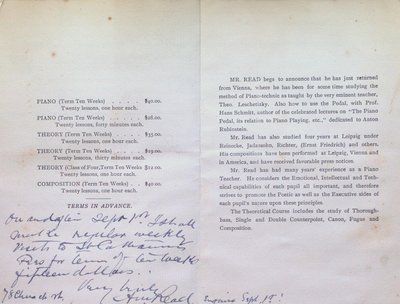 PIANO (Term Ten Weeks) . . . . $40.00.
Twenty lessons, one hour each.
PIANO (Term Ten Weeks) . . . . $28.00.
Twenty lessons, forty minutes each.
THEORY (Term Ten Weeks) . . . $35.00.
Twenty lessons, one hour each.
THEORY (Term Ten Weeks) . . . $19.00.
Twenty lessons, thirty minutes each.
THEORY (Class of Four, Term Ten Weeks $12.00.
Twenty lessons, one hour each.
COMPOSITION (Term Ten Weeks) . $40.00.
Twenty lessons, one hour each.
TERMS IN ADVANCE.
On and after Sept 1st I shall
make regular weekly
visits to
for term of ten weeks
fifteen dollars.
Very truly
Read
MR. READ begs to announce that he has just returned
from Vienna, where he has been for some time studying the
method of Piano-technic as taught by the very eminent teacher,
Theo. Leschetizky. Also how to use the Pedal, with Prof.
Hans Schmitt, author of the celebrated lectures on "The Piano
Pedal, its relation to Piano Playing, etc.," dedicated to Anton
Rubinstein.
Mr. Read has also studied four years at Leipzig under
Reinecke, Jadassohn, Richter, (Ernst Friedrich) and others.
His compositions have been performed at Leipzig, Vienna and
in America, and have received favorable press notices.
Mr. Read has had many years' experience as a Piano
Teacher. He considers the Emotional, Intellectual and Tech-
nical capabilities of each pupil all important, and therefore
strives to promote the Poetic as well as the Executive sides of
each pupil's nature upon these principles.
The Theoretical Course includes the study of Thorough-
bass, Single and Double Counterpoint, Canon, Fugue and
Composition.